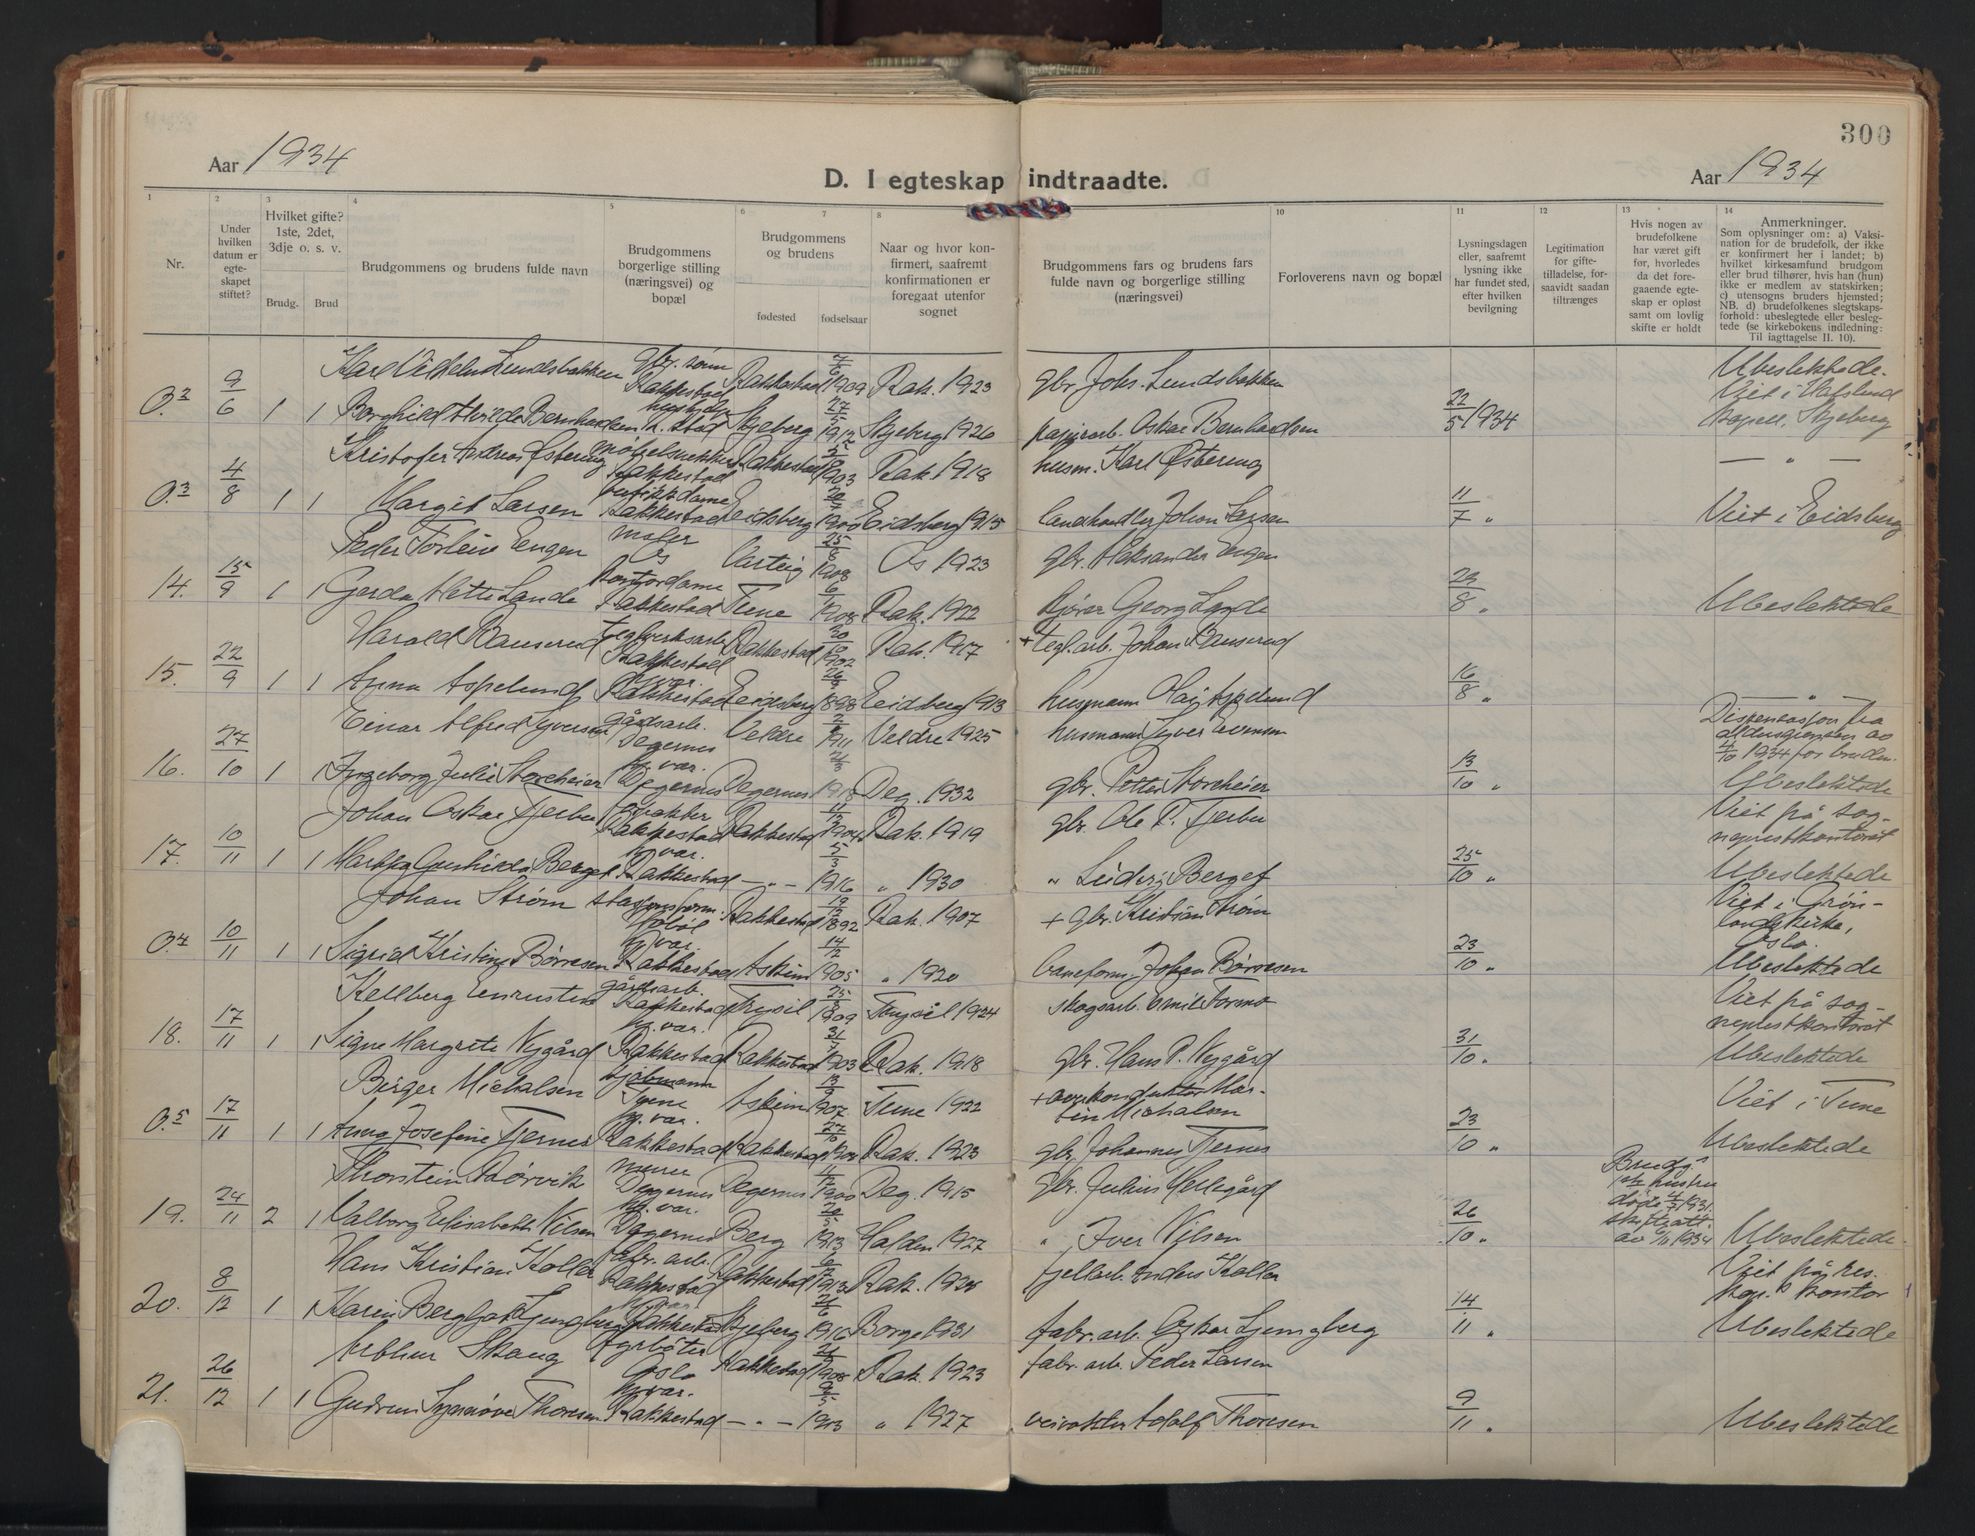 300
Aar 1934
D. I egteskap indtraadte.
Aar 1934
1 2 3 4 5 6 7 8 10 11 12 13 14
Nr.
Under hvilken datum er egteskapet stiftet?
Hvilket gifte? 1ste, 2det, 3dje o. s. v.
Brudg. Brud
Brudgommens og brudens fulde navn
Brudgommens borgerlige stilling (næringsvei) og bopæl
Brudgommens og brudens
fødested fødselsaar
Naar og hvor konfirmert, saafremt konfirmationen er foregaat utenfor sognet
Brudgommens fars og brudens fars fulde navn og borgerlige stilling (næringsvei)
Forloverens navn og bopæl
Lysningsdagen eller, saafremt lysning ikke har fundet sted, efter hvilken bevilgning
Legitimation for giftetilladelse, forsaavidt saadan tiltrænges
Hvis nogen av brudefolkene har været gift før, hvorledes da det foregaaende egteskap er opløst samt om lovlig skifte er holdt
Anmerkninger.
Som oplysninger om: a) Vaksination for de brudefolk, der ikke er konfirmert her i landet; b) hvilket kirkesamfund brudgom eller brud tilhører, hvis han (hun) ikke er medlem av statskirken; c) utensogns bruders hjemsted; NB. d) brudefolkenes slegtskapsforhold: ubeslegtede eller beslegtede (se kirkebokens indledning: Til iagttagelse II. 10).
Karl Vilhelm Lundsbakken gbr. sønn Rakkestad Rakkestad 7/6 1909 Rak. 1923 gbr. Johs. Lundsbakken Ubeslektede.
0.2 9/6 1 1 Borghild Hvilda Bernhardsen Skjeberg 27/5 1912 Skjeberg 1926 papirarb. Oskar Bernhardsen 22/5 1934 Viet i Hafslund kapell, Skjeberg
Kristofer Andreas Østereng møbelsnekker Rakkestad Rakkestad 1903 Rak. 1918 husm. Karl Østereng — " —
0.3 4/8 1 1 Margit Larsen butikkdame Rakkestad Eidsberg 1900 Eidsberg 1915 landhandler Johan Larsen 11/7 " Viet i Eidsberg
Peder Torleiv Engen maler Os Varteig 25/6 1908 Os 1923 gbr. Aleksander Engen
14. 15/9 1 1 Gerda Mette Lande kontordame Rakkestad Tune 1908 Rak. 1922 kjører Georg Lande 29/8 " Ubeslektede
Harald Bauserud teglverksarb. Rakkestad Rakkestad 1902 Rak. 1917 + tegl.arb. Johan Bauserud
15. 22/9 1 1 Anna Aspelund hj.var. Rakkestad Eidsberg 1898 Eidsberg 1913 husmann Olaf Aspelund 16/8 " — " —
Einar Alfred Iversen gårdsarb. Degernes Veldre 1911 Veldre 1925 husmann Iver Evensen Dispensasjon fra aldersgrensen av 4/10 1934 for bruden.
16. 27/10 1 1 Ingeborg Julie Storeheier hj.var. Degernes Degernes 1918 Deg. 1932 gbr. Petter Storeheier 13/10 " Ubeslektede
Johan Oskar Fjerbu Rakkestad Rakkestad 1904 Rak. 1919 gbr. Ole P. Fjerbu Viet på sogneprestkontoret
17. 10/11 1 1 Gunhilda Berget hj.var. Rakkestad — " — 5/3 1916 " 1930 " Berget 25/10 " Ubeslektede
Johan Strøm Hobøl Rakkestad 19/12 1892 Rak. 1907 + gbr. Kristian Strøm Viet i Grønlandskirke, Oslo.
0.4 10/11 1 1 Sigrid Kristine Børresen hj.var. Rakkestad Askim 14/12 1905 " 1920 baneform. Johan Børresen 23/10 " Ubeslektede
Kellberg gårdsarb. Rakkestad Trysil 1909 Trysil 1924 skogsarb. Emil Formo Viet på sogneprestkontoret
18. 17/11 1 1 Signe Margrete Nygård hj.var. Rakkestad Rakkestad 1903 Rak. 1918 gbr. Hans P. Nygård 31/10 " Ubeslektede
Birger Michalsen sjømann Tune Askim 1907 Tune 1922 + overkonduktør Martin Michalsen Viet i Tune
0.5 17/11 1 1 Anna Josefine Fjernes hj.var. Rakkestad Rakkestad 27/10 Rak. 1923 gbr. Johannes Fjernes 23/10 " Ubeslektede
Thorstein Rørvik murer Degernes Degernes 1900 Deg. 1915 gbr. Julius Hellegård Brudg.s 1ste hustru døde 4/7 1931. skifteatt. av 9/11 1934
19. 24/11 2 1 Valborg Elisabeth Nilsen hj.var. Degernes Berg 20/5 1913 Halden 1927 " Iver Nilsen 26/10 " Ubeslektede
Hans Kristian Koller fabr. arb. Rakkestad Rakkestad 1913 Rak. 1928 fjellarb. Anders Koller Viet på res. kap.s kontor
20. 8/12 1 1 Karin Bergljot Ljungberg hj.var. Rakkestad Skjeberg 21/6 1916 Borge 1931 fabr. arb. Oskar Ljungberg 14/11 " Ubeslektede
Arthur Skaug fyrbøter Oslo Rakkestad 1908 Rak. 1923 fabr. arb. Peder Larsen
21. 26/12 1 1 Gudrun Synnøve Thoresen hj.var. Rakkestad — " — 1913 " 1927 veivokter Adolf Thoresen 9/11 " Ubeslektede